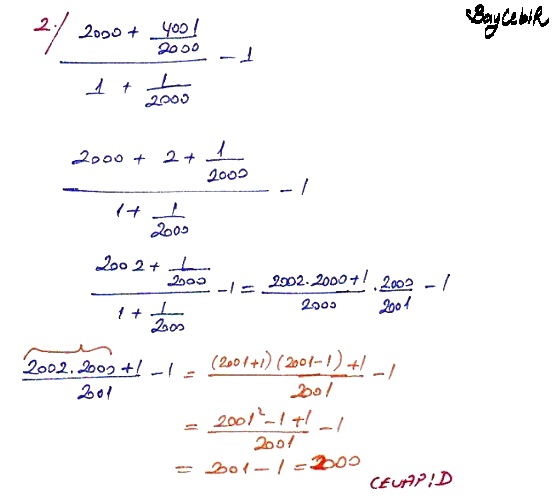 BayCebiR
2./ (2000 + 4001/2000)/(1 + 1/2000) - 1
(2000 + 2 + 1/2000)/(1 + 1/2000) - 1
(2002 + 1/2000)/(1 + 1/2000) - 1 = (2002.2000+1)/2000 . 2000/2001 - 1
(2002.2000+1)/2001 - 1 = ((2001+1)(2001-1)+1)/2001 - 1
= (2001²-1+1)/2001 - 1
= 2001 - 1 = 2000
CEVAP:D